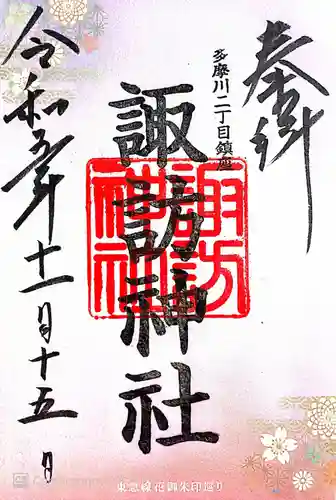 奉拝
多摩川二丁目鎮座
諏訪神社
諏訪神社
令和五年十一月十五日
東急線花御朱印巡り